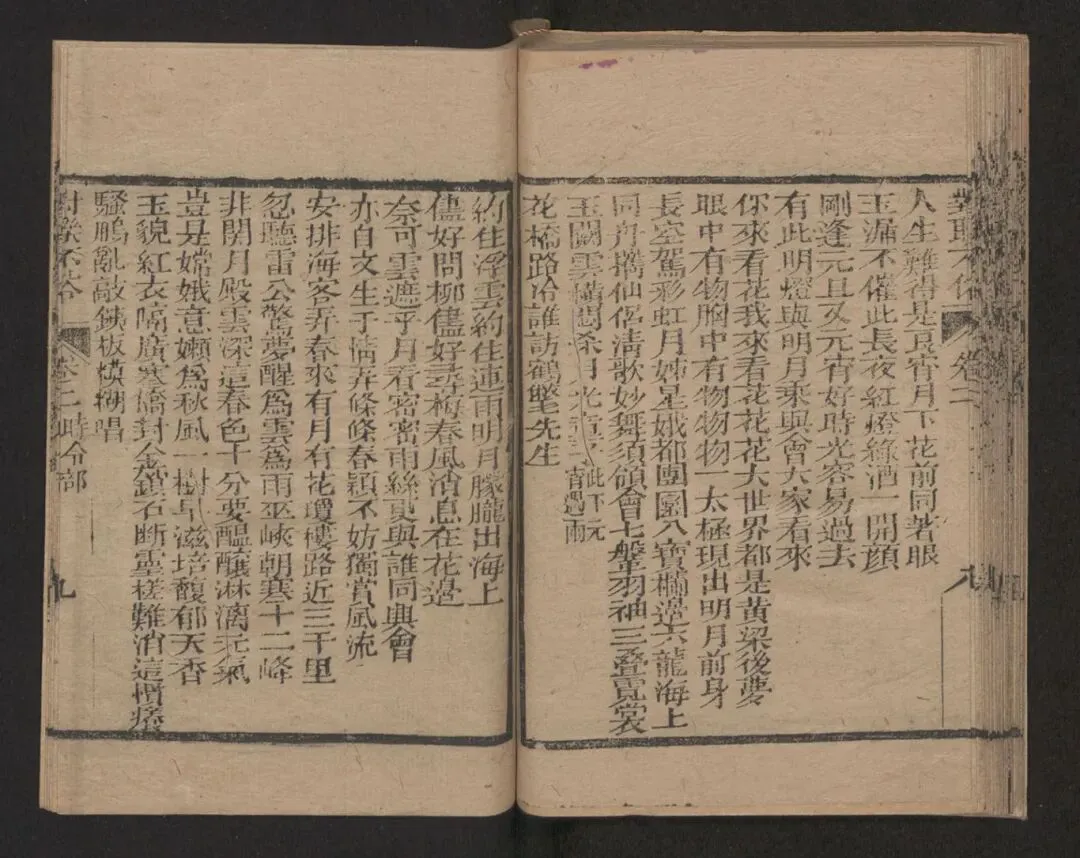 對聯不俗 卷二 八
人生難得是良宵月下花前同著眼
玉漏不催此長夜紅燈綠酒一開顏
剛逢元旦又元宵好時光容易過去
有此明燈與明月乘興會大家看來
你來看花我來看花花花大世界都是黄梁後夢
眼中有物胸中有物物物一太極現出明月前身
長空駕彩虹月姊星娥都團圓八寶欄邊六龍海上
同舟携仙侶清歌妙舞須領會七盤羽袖三叠霓裳
玉闕雲橫悶杀月光童子此下元宵遇雨
花橋路冷誰訪鶴髦先生
約住浮雲約住連雨明月朦朧出海上
儘好問柳儘好尋梅春風消息在花邊
奈可雲遮乎月看密密雨絲更與誰同興會
亦自文生于情弄條條春穎不妨獨賞風流
安排海客弄春來有月有花瓊樓路近三千里
忽聽雷公驚夢醒爲雲爲雨巫峽朝寒十二峰
非関月殿雲深這春色十分要醞釀淋漓元氣
豈是嫦娥意嬾爲秋風一樹早滋培馥郁天香
玉貌紅衣隔廣寒僑對金鎖不断靈槎難消這慣癢
騷鵬亂敲鉄板横糊唱
對聯不俗 卷二 時令部 九